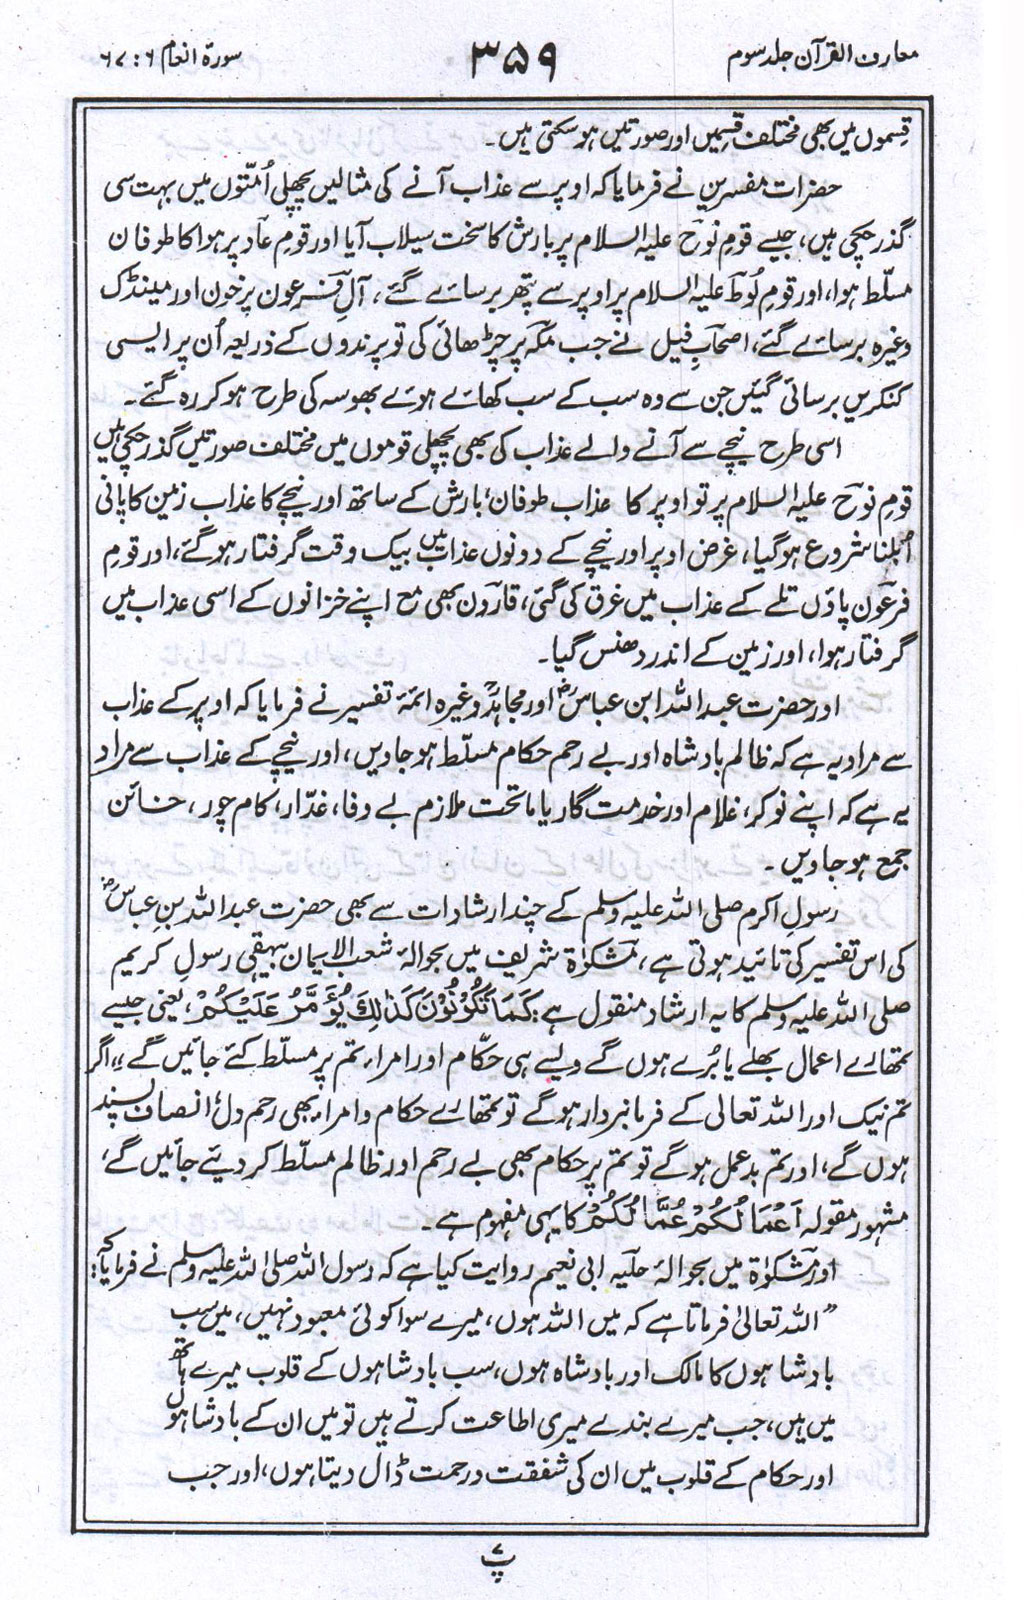 معارف القرآن جلد سوم
۳۵۹
سورۃ انعام ۶ : ۶۷
قِسموں میں بھی مختلف قِسمیں اور صورتیں ہو سکتی ہیں۔
حضرات مفسرین نے فرمایا کہ اوپر سے عذاب آنے کی مثالیں پچھلی اُمتّوں میں بہت سی
گذر چکی ہیں، جیسے قومِ نوح علیہ السلام پر بارش کا سخت سیلاب آیا اور قومِ عاد پر ہوا کا طوفان
مسلّط ہوا، اور قومِ لُوط علیہ السلام پر اوپر سے پتھر برسائے گئے، آلِ فرعون پر خون اور مینڈک
وغیرہ برسائے گئے، اصحابِ فیل نے جب مکّہ پر چڑھائی کی تو پرندوں کے ذریعہ اُن پر ایسی
کنکریں برسائی گئیں جن سے وہ سب کے سب کھائے ہوئے بھوسہ کی طرح ہو کر رہ گئے۔
اسی طرح نیچے سے آنے والے عذاب کی بھی پچھلی قوموں میں مختلف صورتیں گذر چکی ہیں
قومِ نوح علیہ السلام پر تو اوپر کا عذاب طوفان، بارش کے ساتھ اور نیچے کا عذاب زمین کا پانی
اُبلنا شروع ہو گیا، غرض اوپر اور نیچے کے دونوں عذاب میں بیک وقت گرفتار ہو گئے، اور قومِ
فرعون پاؤں تلے کے عذاب میں غرق کی گئی، قارون بھی مع اپنے خزانوں کے اسی عذاب میں
گرفتار ہوا، اور زمین کے اندر دھنس گیا۔
اور حضرت عبداللہ ابن عباسؓ اور مجاہدؒ وغیرہ ائمۂ تفسیر نے فرمایا کہ اوپر کے عذاب
سے مراد یہ ہے کہ ظالم بادشاہ اور بے رحم حکام مسلّط ہو جاویں، اور نیچے کے عذاب سے مراد
یہ ہے کہ اپنے نوکر، غلام اور خدمت گار یا ماتحت ملازم بے وفا، غدّار، کام چور، خائن
جمع ہو جاویں۔
رسولِ اکرم صلی اللہ علیہ وسلم کے چند ارشادات سے بھی حضرت عبداللہ بن عباسؓ
کی اس تفسیر کی تائید ہوتی ہے، مشکوٰۃ شریف میں بحوالۂ شعب الایمان بیہقی رسولِ کریم
صلی اللہ علیہ وسلم کا یہ ارشاد منقول ہے: کَمَا تَکُوْنُوْنَ کَذٰلِکَ یُؤَمَّرُ عَلَیْکُمْ، یعنی جیسے
تمھارے اعمال بھلے یا بُرے ہوں گے ویسے ہی حکّام اور امراء تم پر مسلّط کئے جائیں گے، اگر
تم نیک اور اللہ تعالیٰ کے فرمانبردار ہوگے تو تمھارے حکام و امراء بھی رحم دل، انصاف پسند
ہوں گے، اور تم بدعمل ہوگے تو تم پر حکام بھی بے رحم اور ظالم مسلّط کر دیئے جائیں گے،
مشہور مقولہ اَعْمَالُکُمْ عُمَّالُکُمْ کا یہی مفہوم ہے۔
اور مشکوٰۃ میں بحوالۂ حلیہ ابی نعیم روایت کیا ہے کہ رسول اللہ صلی اللہ علیہ وسلم نے فرمایا کہ:
”اللہ تعالیٰ فرماتا ہے کہ میں اللہ ہوں، میرے سوا کوئی معبود نہیں، میں سب
بادشاہوں کا مالک اور بادشاہ ہوں، سب بادشاہوں کے قلوب میرے ہاتھ
میں ہیں، جب میرے بندے میری اطاعت کرتے ہیں تو میں ان کے بادشاہوں
اور حکام کے قلوب میں ان کی شفقت و رحمت ڈال دیتا ہوں، اور جب
پ ۷